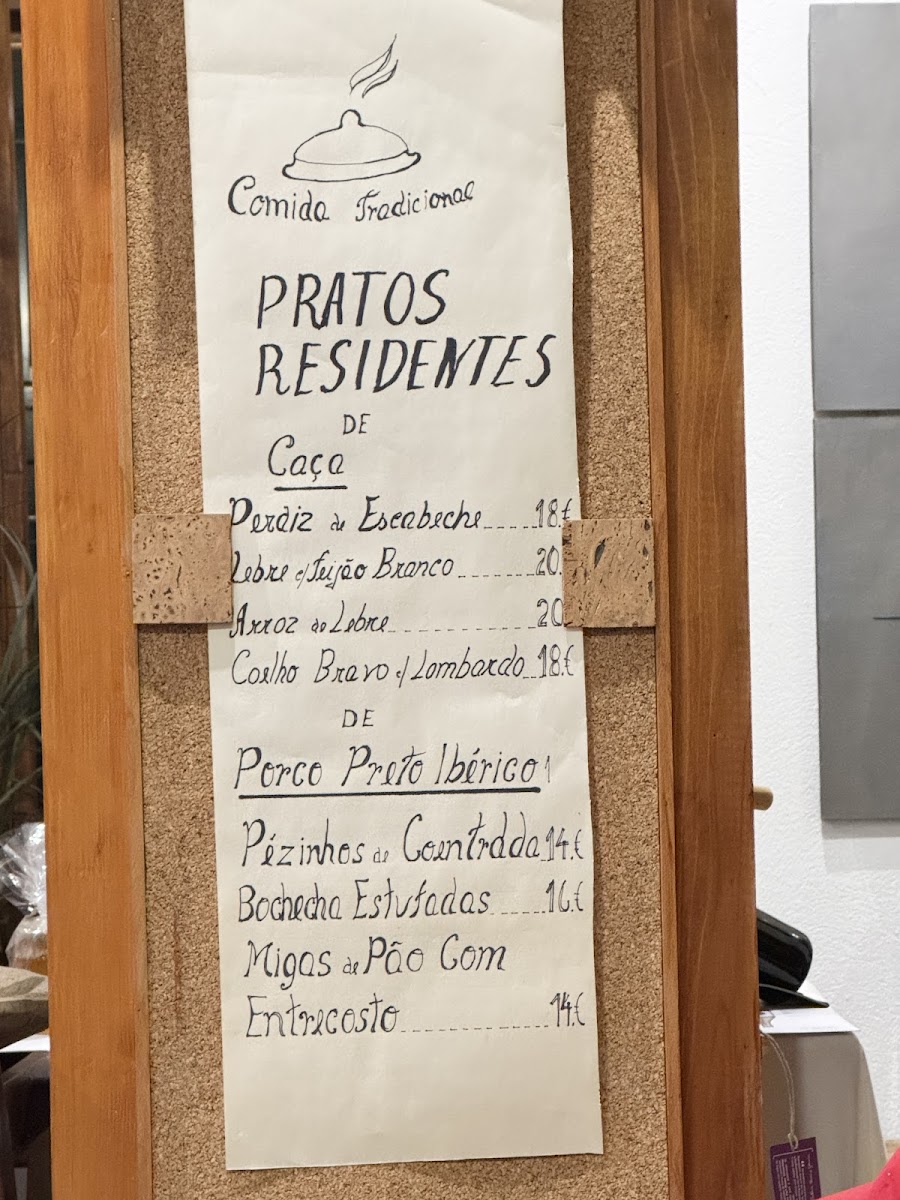 Comida Tradicional
PRATOS
RESIDENTES
DE
Caça
Perdiz de Escabeche.....18.€
Lebre c/feijão Branco.......20.
Arroz de Lebre..............20
Coelho Bravo c/Lombardo..18.€
DE
Porco Preto Ibérico
Pézinhos de Coentrada..14.€
Bochecha Estufadas.....16.€
Migas de Pão Com
Entrecosto..............14.€